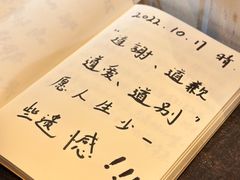 2022.10.17 晴
“道謝、道歉
道愛、道别”
愿人生少一
些遗憾!!!